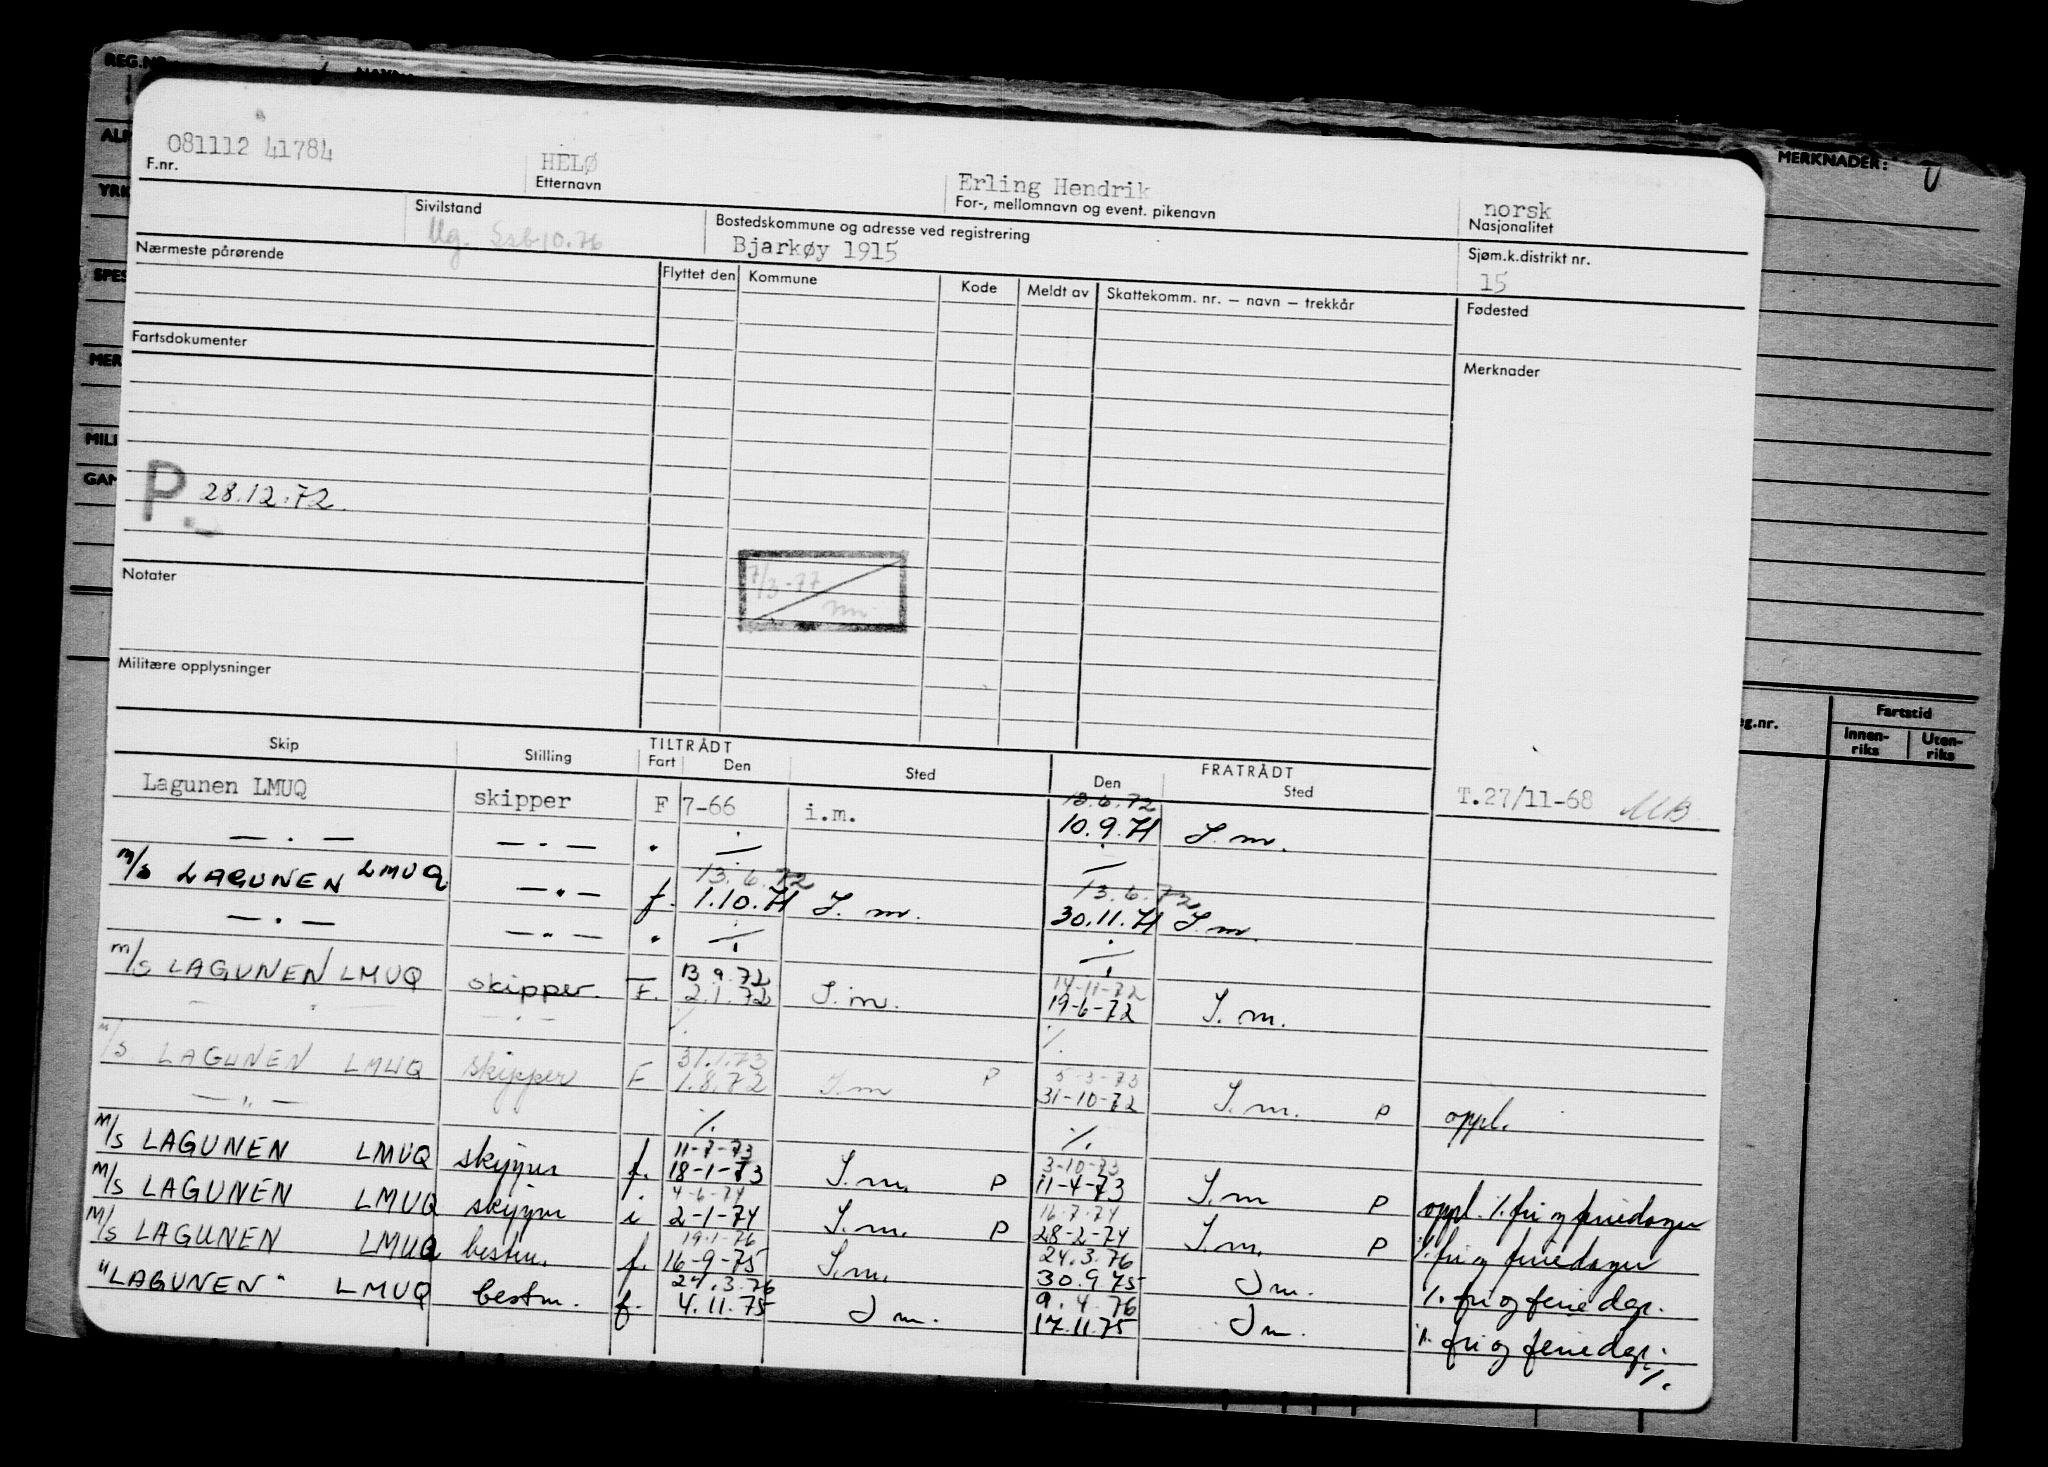 REG.NR.
NAVN:
MERKNADER:
081112 41784
F.nr.
HELØ
Etternavn
Erling Hendrik
For-, mellomnavn og event. pikenavn
norsk
Nasjonalitet
Sivilstand
Ug. Ssb 10.76
Bostedskommune og adresse ved registrering
Bjarkøy 1915
Sjøm.k.distrikt nr.
15
Nærmeste pårørende
Flyttet den Kommune Kode Meldt av Skattekomm. nr. — navn — trekkår
Fødested
Fartsdokumenter
Merknader
P 28.12.72.
7/3-77
Notater
Militære opplysninger
Skip Stilling TILTRÅDT FRATRÅDT
Fart Den Sted Den Sted
eg.nr. Fartstid
Innen-riks Uten-riks
Lagunen LMUQ skipper F 7-66 i.m. T.27/11-68 MB
— . — — . — . ./. 13.6.72
10.9.71 I.m.
m/s LAGUNEN LMUQ — " — f. 13.6.72
1.10.71 I.m. 13.6.72
30.11.71 I.m.
— . — — " — " ./. ./.
m/s LAGUNEN LMUQ skipper. F. 13.9.72
2.1.72 I.m. 14-11-72
19-6-72 I.m.
— " — — " — ./. ./.
m/s LAGUNEN LMUQ skipper F 31.1.73
1.8.72 I.m P 5-3-73
31-10-72 I.m. P oppl.
— " — ./. ./.
m/s LAGUNEN LMUQ skipper f. 11-7-73
18-1-73 I.m. P 3-10-73
11-4-73 I.m P oppl. ./. fri og feriedager
m/s LAGUNEN LMUQ skipper i 4-6-74
2-1-74 I.m. P 16-7-74
28-2-74 I.m. P ./. fri og feriedager
m/s LAGUNEN LMUQ bestm. f. 19-1-76
16-9-75 I.m. 24.3.76
30.9.75 I m. ./. fri og feriedgr.
"LAGUNEN" LMUQ bestm. f. 24.3.76
4.11.75 I m. 9.4.76
17.11.75 I m. ./. fri og feriedgr. ./.